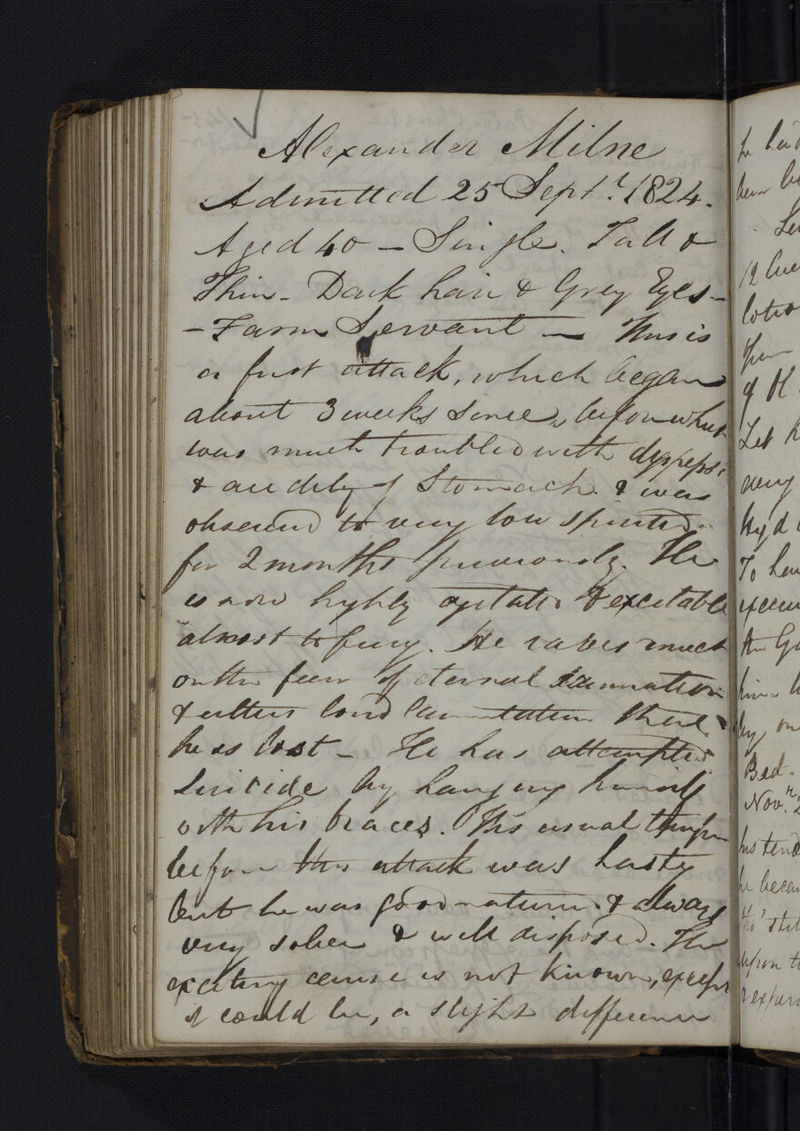 Alexander Milne
Admitted 25 Sept.r 1824.
Aged 40 – Single. Tall &
Thin – Dark hair & Grey Eyes –
– Farm Servant – This is
a first attack, which began
about 3 weeks since, before which
was much troubled with dyspeps.
& acidity of Stomach & was
observed to very low spirited
for 2 months previously. He
is now highly agitated & excitable
almost to fury. He raves much
on the fear of eternal damnation
& utters loud lamentation that
he is lost – He has attempted
Suicide by hanging himself
with his braces. His usual temper
before this attack was hasty
but he was good natured & always
very sober & well disposed. The
exciting cause is not known, except
it could be, a slight difference
he had
been
12
Let h
Hyd
To
Bed.
Nov.r 2
he becam
upon t